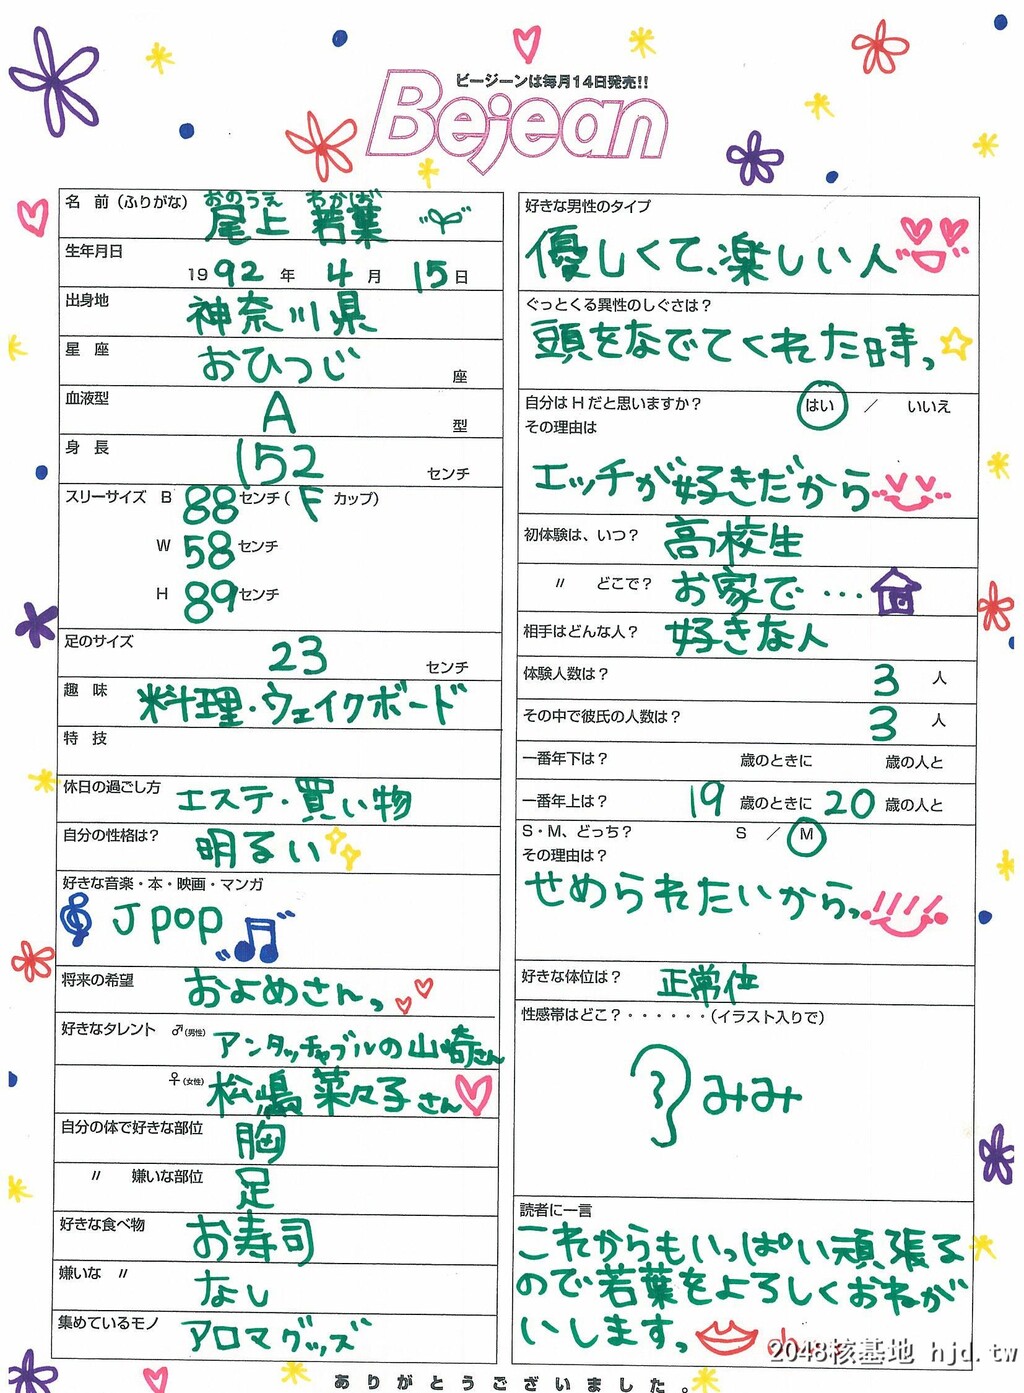 ビージーンは毎月14日発売!!
Bejean
名 前（ふりがな） おのうえ わかば
尾上 若葉
生年月日
1992年 4月 15日
出身地 神奈川県
星 座 おひつじ 座
血液型 A 型
身 長 152 センチ
スリーサイズ B 88 センチ（ F カップ）
W 58 センチ
H 89 センチ
足のサイズ 23 センチ
趣 味 料理・ウェイクボード
特 技
休日の過ごし方 エステ・買い物
自分の性格は？ 明るい
好きな音楽・本・映画・マンガ
J pop
将来の希望 およめさんっ
好きなタレント ♂（男性） アンタッチャブルの山崎さん
♀（女性） 松嶋菜々子さん
自分の体で好きな部位 胸
〃 嫌いな部位 足
好きな食べ物 お寿司
嫌いな 〃 なし
集めているモノ アロマグッズ
好きな男性のタイプ
優しくて、楽しい人
ぐっとくる異性のしぐさは？
頭をなでてくれた時っ
自分はHだと思いますか？ はい ／ いいえ
その理由は
エッチが好きだから
初体験は、いつ？ 高校生
〃 どこで？ お家で…
相手はどんな人？ 好きな人
体験人数は？ 3 人
その中で彼氏の人数は？ 3 人
一番年下は？ 歳のときに 歳の人と
一番年上は？ 19 歳のときに 20 歳の人と
S・M、どっち？ S ／ M
その理由は？
せめられたいからっ
好きな体位は？ 正常位
性感帯はどこ？・・・・・・（イラスト入りで）
みみ
読者に一言
これからもいっぱい頑張る
ので若葉をよろしくおねが
いします。
ありがとうございました。
2048核基地 hjd.tw